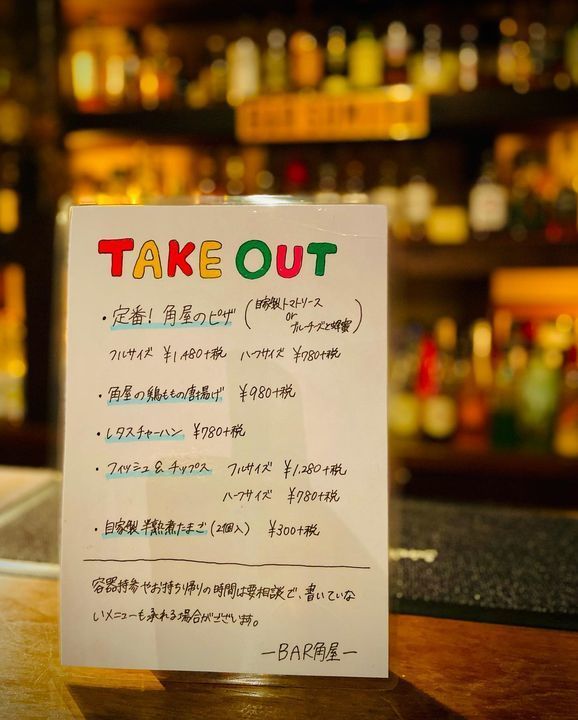 TAKE OUT
・定番!角屋のピザ (自家製トマトソース
or
ブルーチーズと蜂蜜)
フルサイズ ¥1,480+税 ハーフサイズ ¥780+税
・角屋の鶏ももの唐揚げ ¥980+税
・レタスチャーハン ¥780+税
・フィッシュ&チップス フルサイズ ¥1,280+税
ハーフサイズ ¥780+税
・自家製半熟煮たまご(2個入) ¥300+税
容器持参やお持ち帰りの時間は要相談で、書いていな
いメニューも承れる場合がございます。
—BAR角屋—